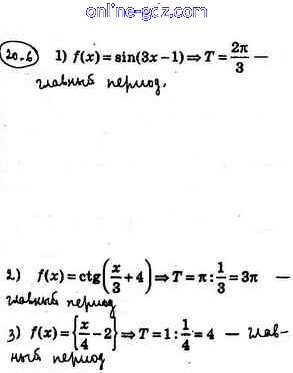 online-gdz.com
20.6 1) f(x)=sin(3x−1)⇒T=2π/3 —
главный период.
2) f(x)=ctg(x/3+4)⇒T=π:1/3=3π —
главный период
3) f(x)={x/4−2}⇒T=1:1/4=4 — глав-
ный период